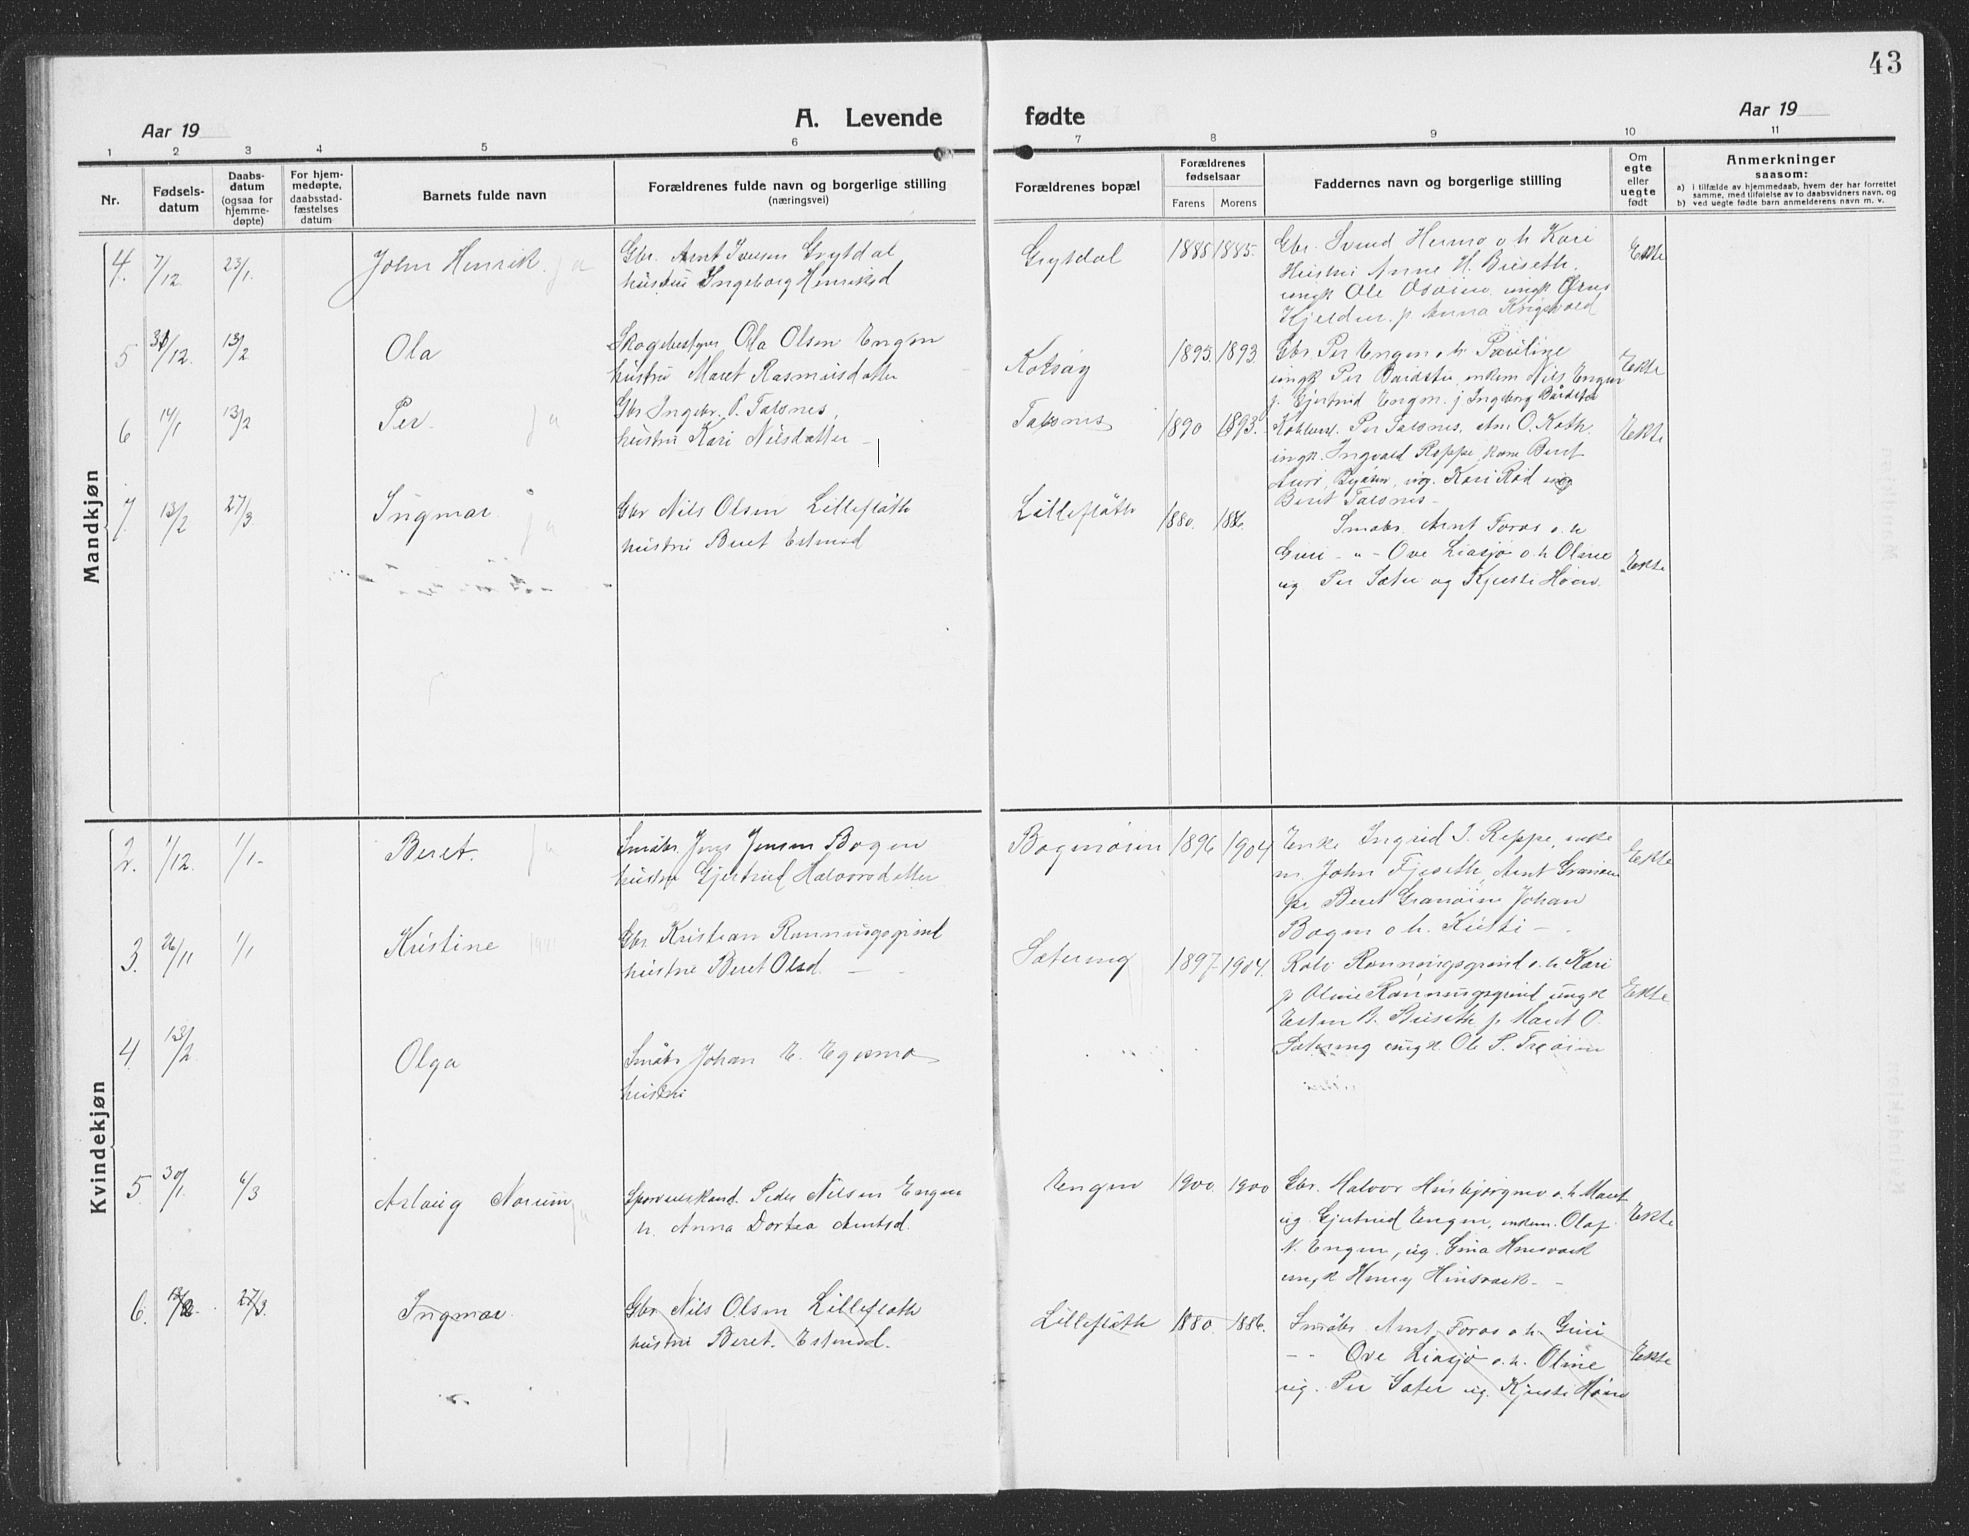 43
Aar 19
A. Levende
fødte
Aar 19
1 2 3 4 5 6 7 8 9 10 11
Nr.
Fødsels-
datum
Daabs-
datum
(ogsaa for
hjemme-
døpte)
For hjem-
medøpte,
daabsstad-
fæstelses
datum
Barnets fulde navn
Forældrenes fulde navn og borgerlige stilling
(næringsvei)
Forældrenes bopæl
Forældrenes
fødselsaar
Farens Morens
Faddernes navn og borgerlige stilling
Om
egte
eller
uegte
født
Anmerkninger
saasom:
a) i tilfælde av hjemmedaab, hvem der har forrettet
samme, med tilføielse av to daabsvidners navn, og
b) ved uegte fødte barn anmelderens navn m. v.
Mandkjøn
4. 7/12. 23/1. John Henrik. ja
Gbr. Arnt Iversen Grytdal
hustru Ingeborg Henriksd
Grytdal 1888 1885.
Gbr. Svend Hermo o. h. Kari
Hustru Anne H. Buseth.
ungk Ole
Kjelden. p Anna
Ekte
5 31/12. 13/2 Ola
Skogbestyrer Ola Olsen Engen
hustru Maret Rasmusdatter
Kotsøy 1895. 1893.
Gbr Per Engen o. h. Pauline
ungk Per Baidstu, enkem Nils Engen
p. Gjertrud Engen. p Ingeborg
Ekte
6 14/1 13/2 Per. ja
Gbr Ingebr. P. Talsnes,
hustru Kari Nilsdatter –
Talsnes 1890 1893.
Per Talsnes, Arn. O. Koth.
ungk. Ingvald Reppe, kone Beret
Kari Rød ug
Beret Talsnes –
Ekte
7. 13/2 27/3 Ingmar ja
Gbr Nils Olsen Lillefloth
hustru Beret Estensd
Lillefloth 1880. 1886.
Smabr. Arnt Foros o. h
Guri – " – Ove Liasjø o. h Oline
ug Per Sæter og Kjersti Høen.
Ekte
Kvindekjøn
2. 1/12. 1/1- Beret. ja
Småbr Jens Jensen Bogen
hustru Gjertrud Halvorsdatter
Bogenøien 1896 1904
Enke Ingrid I. Reppe, enke
m. John Fjeseth, Arnt Granøien
pe Beret Granøien Johan
Bogen o h. Kirsti – .
Ekte
3. 26/11 1/1 Kristine
Gbr Kristian Rønningsgrind
hustru Beret Olsd. –
Sætereng 1897 1904.
Rønningsgrind o. h. Kari
p Oline Rønningsgrind ungk
Esten B. Buseth p. Maret O.
Sætereng ungk. Ole P. Trøøien
Ekte
4. 13/2. Olga
Småbr Johan E. Eggsmo
hustru
5. 30/1. 6/3 Aslaug Norunn ja
Peder Nilsen Engen
h. Anna Dortea Arntsd.
Engen 1900. 1900
Gbr. Halvor Husbjørgmo o. h Maret
ug. Gjertrud Engen, enkem. Olaf
N. Engen, ug. Gina Hinsverk
ungk Henry Hinsverk –
Ekte
6. 13/2. 27/3. Ingmar.
Gbr Nils Olsen Lillefloth
hustru Beret. Estensd.
Lillefloth 1880. 1886.
Småbr. Arnt Foros o. h. Guri
– " Ove Liasjø o. h. Oline
ug. Per Sæter ug. Kjersti Høen
Ekte